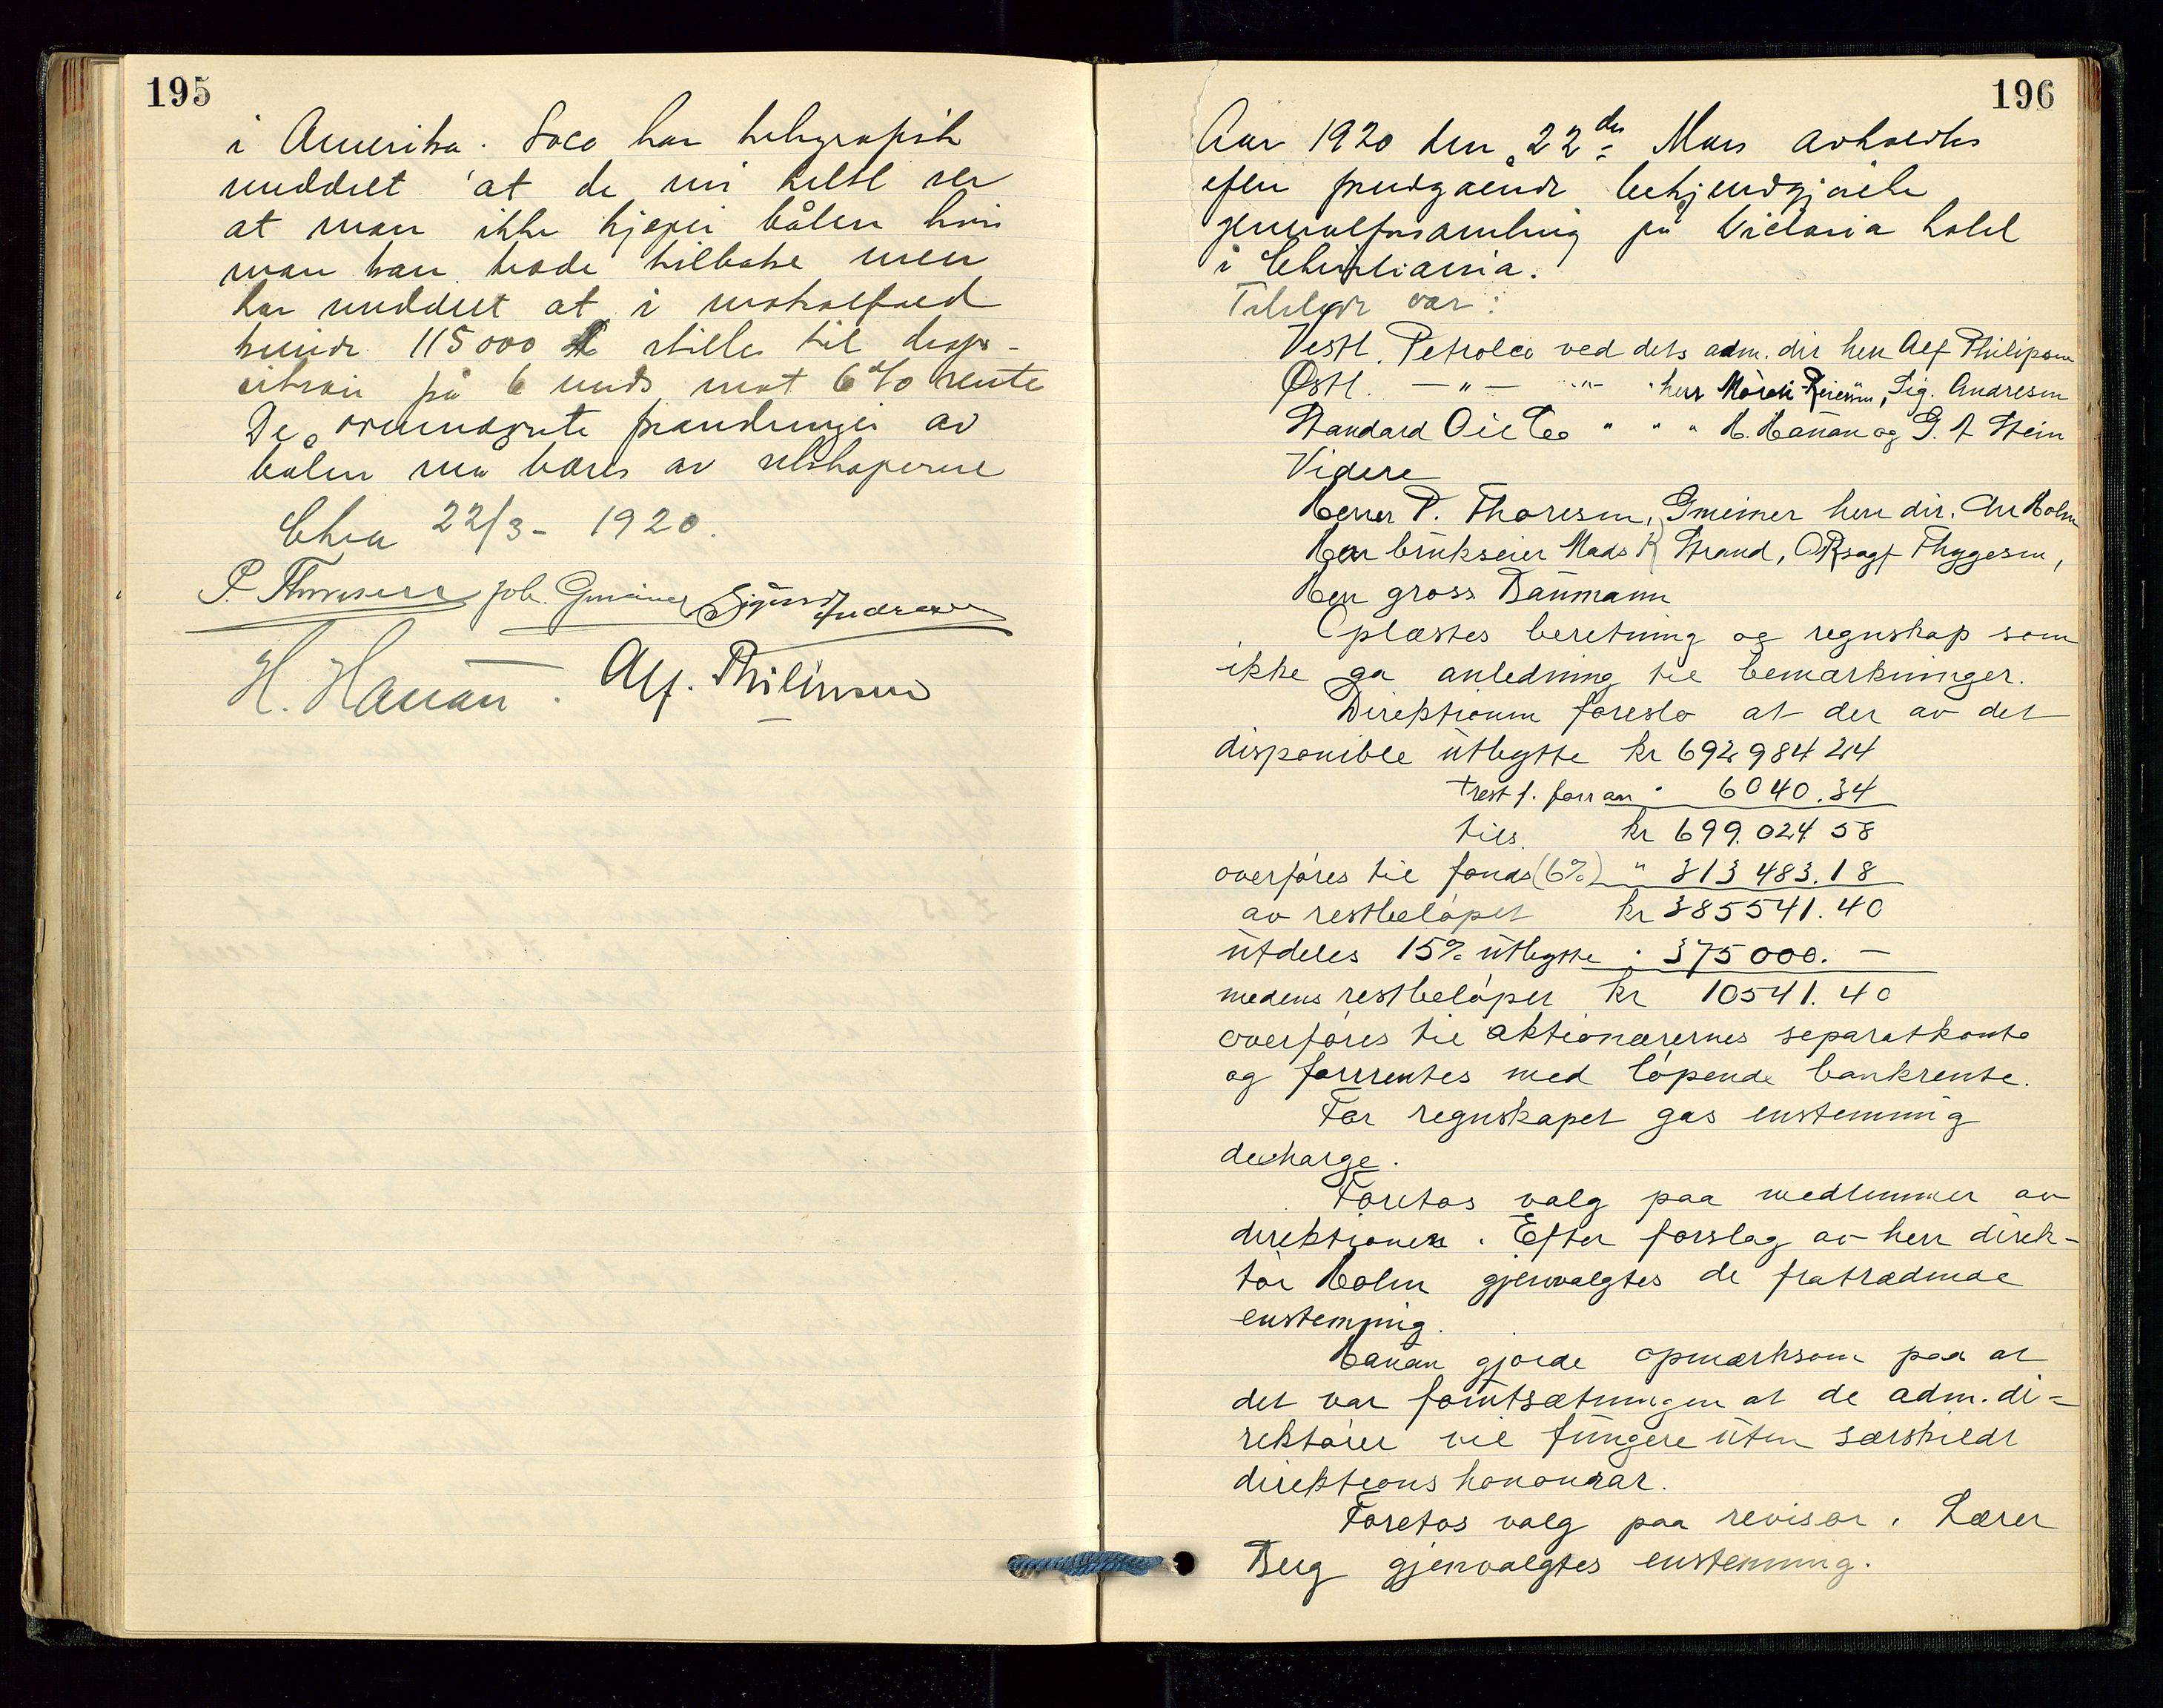 195
i Amerika. Soco har telegrafisk
meddelt at de nu helst ser
at man ikke kjøper båten hvis
man kan træde tilbake men
har meddelt at i motsatfald
kunde 115000 £ stilles til dispo-
sition på 6 mnds mot 6% rente
De ovennævnte forandringer av
båten må bæres av selskaperne
Chra 22/3 - 1920.
P. Thoresen Joh. Gmeiner Sigurd Andresen
H. Hanan. Alf. Philipson
196
Aar 1920 den 22de Mars avholdtes
efter forutgående bekjendtgjørelse
generalforsamling på Victoria hotel
i Christiania.
Tilstede var:
Vestl. Petroleo ved dets adm. dir herr Alf Philipson
Østl. — " — " herr Reiersen, Sig. Andresen
Standard Oil Co " " " H. Hanan og G. A Stein
Videre
Herrer P. Thoresen, Gmeiner herr dir. Chr Holm
Herr brukseier Mads K Strand, ORsagf Thygesen,
Herr gross Baumann
Oplæstes beretning og regnskap som
ikke ga anledning til bemærkninger.
Direktionen foreslo at der av det
disponible utbytte kr 692984 24
+ rest f. forr aar " 6040.34
tils. kr 699.024 58
overføres til fonds (6%) " 313 483.18
av restbeløpet kr 385541.40
utdeles 15% utbytte " 375000. —
medens restbeløpet kr 10541.40
overføres til aktionærernes separatkonto
og forrentes med løpende bankrente.
For regnskapet gas enstemmig
decharge.
Foretos valg paa medlemmer av
direktionen. Efter forslag av herr direk-
tør Holm gjenvalgtes de fratrædende
enstemmig.
Hanan gjorde opmerksom paa at
det var forutsætningen at de adm. di=
rektører vil fungere uten særskildt
direktions honorar.
Foretos valg paa revisor. Lærer
Berg gjenvalgtes enstemmig.